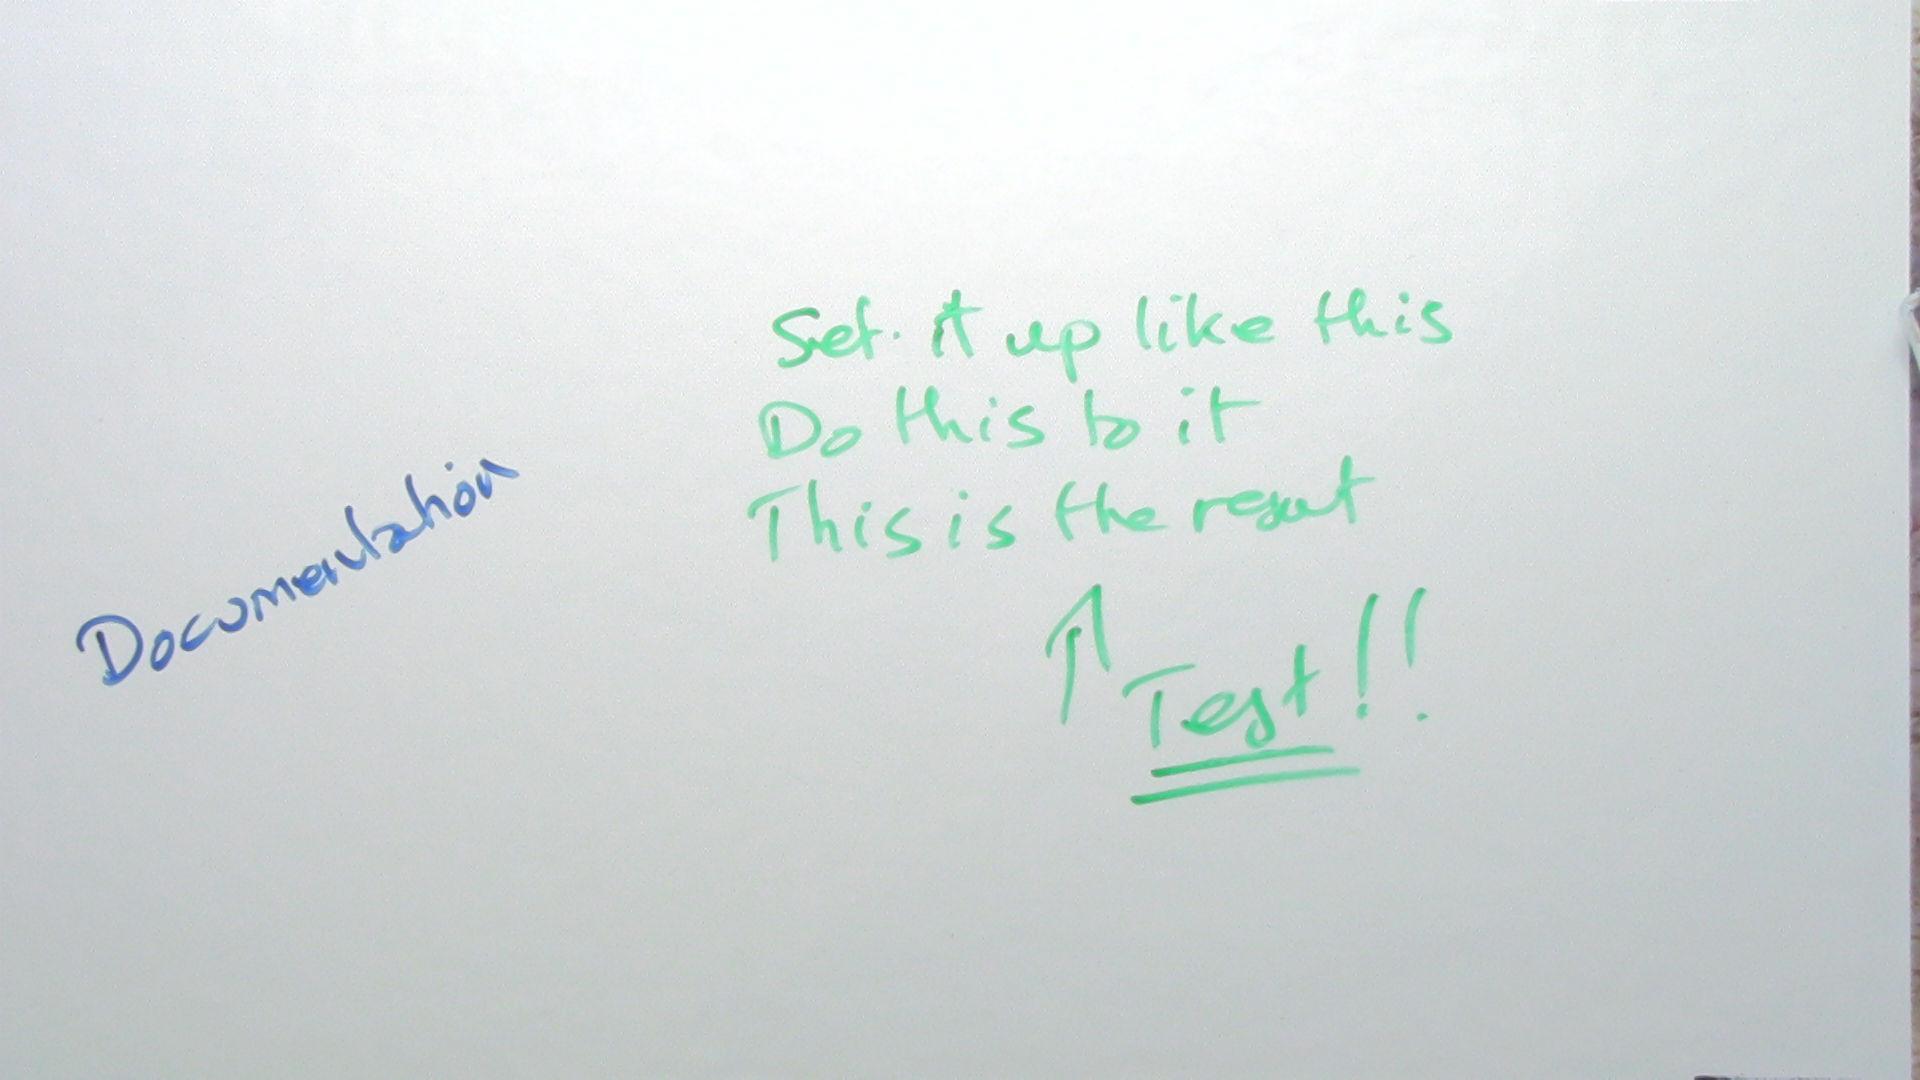 Documentation
Set it up like this
Do this to it
This is the result
↑ Test!!